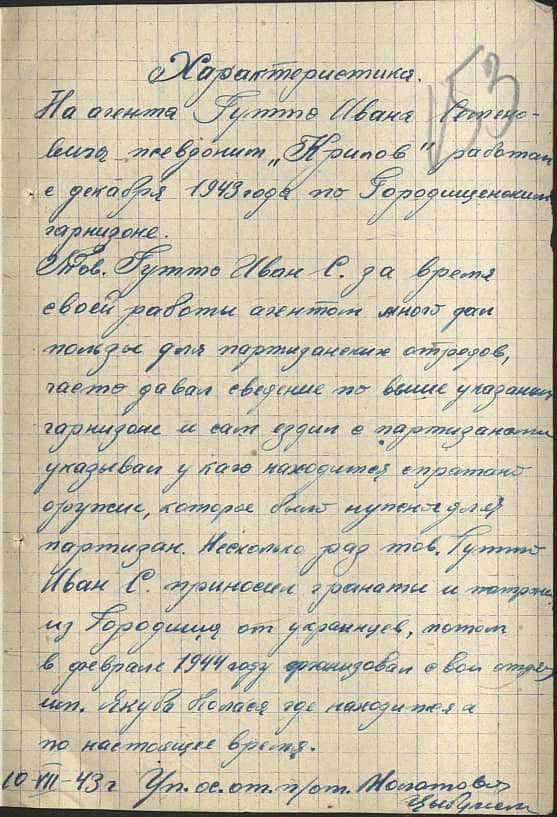 153
Характеристика.
На агента Гутто Ивана Семено-
вича псевдоним „Крипов" работал
с декабря 1943 года по Городищенским
гарнизоне.
Тов. Гутто Иван С. за время
своей работы агентом много дал
пользы для партизанских отрядов,
часто давал сведение по выше указаным
гарнизоне и сам ездил с партизанами
указывал у каго находится спратано
оружие, которое было нужно для
партизан. Несколько раз тов. Гутто
Иван С. приносил гранаты и патроны
из Городища от украинцев, потом
в феврале 1944 году свой отряд
им. Якуба Коласа где находится и
по настоящее время.
10-VII-43 г Уп. ос. от. п/от. Молотова